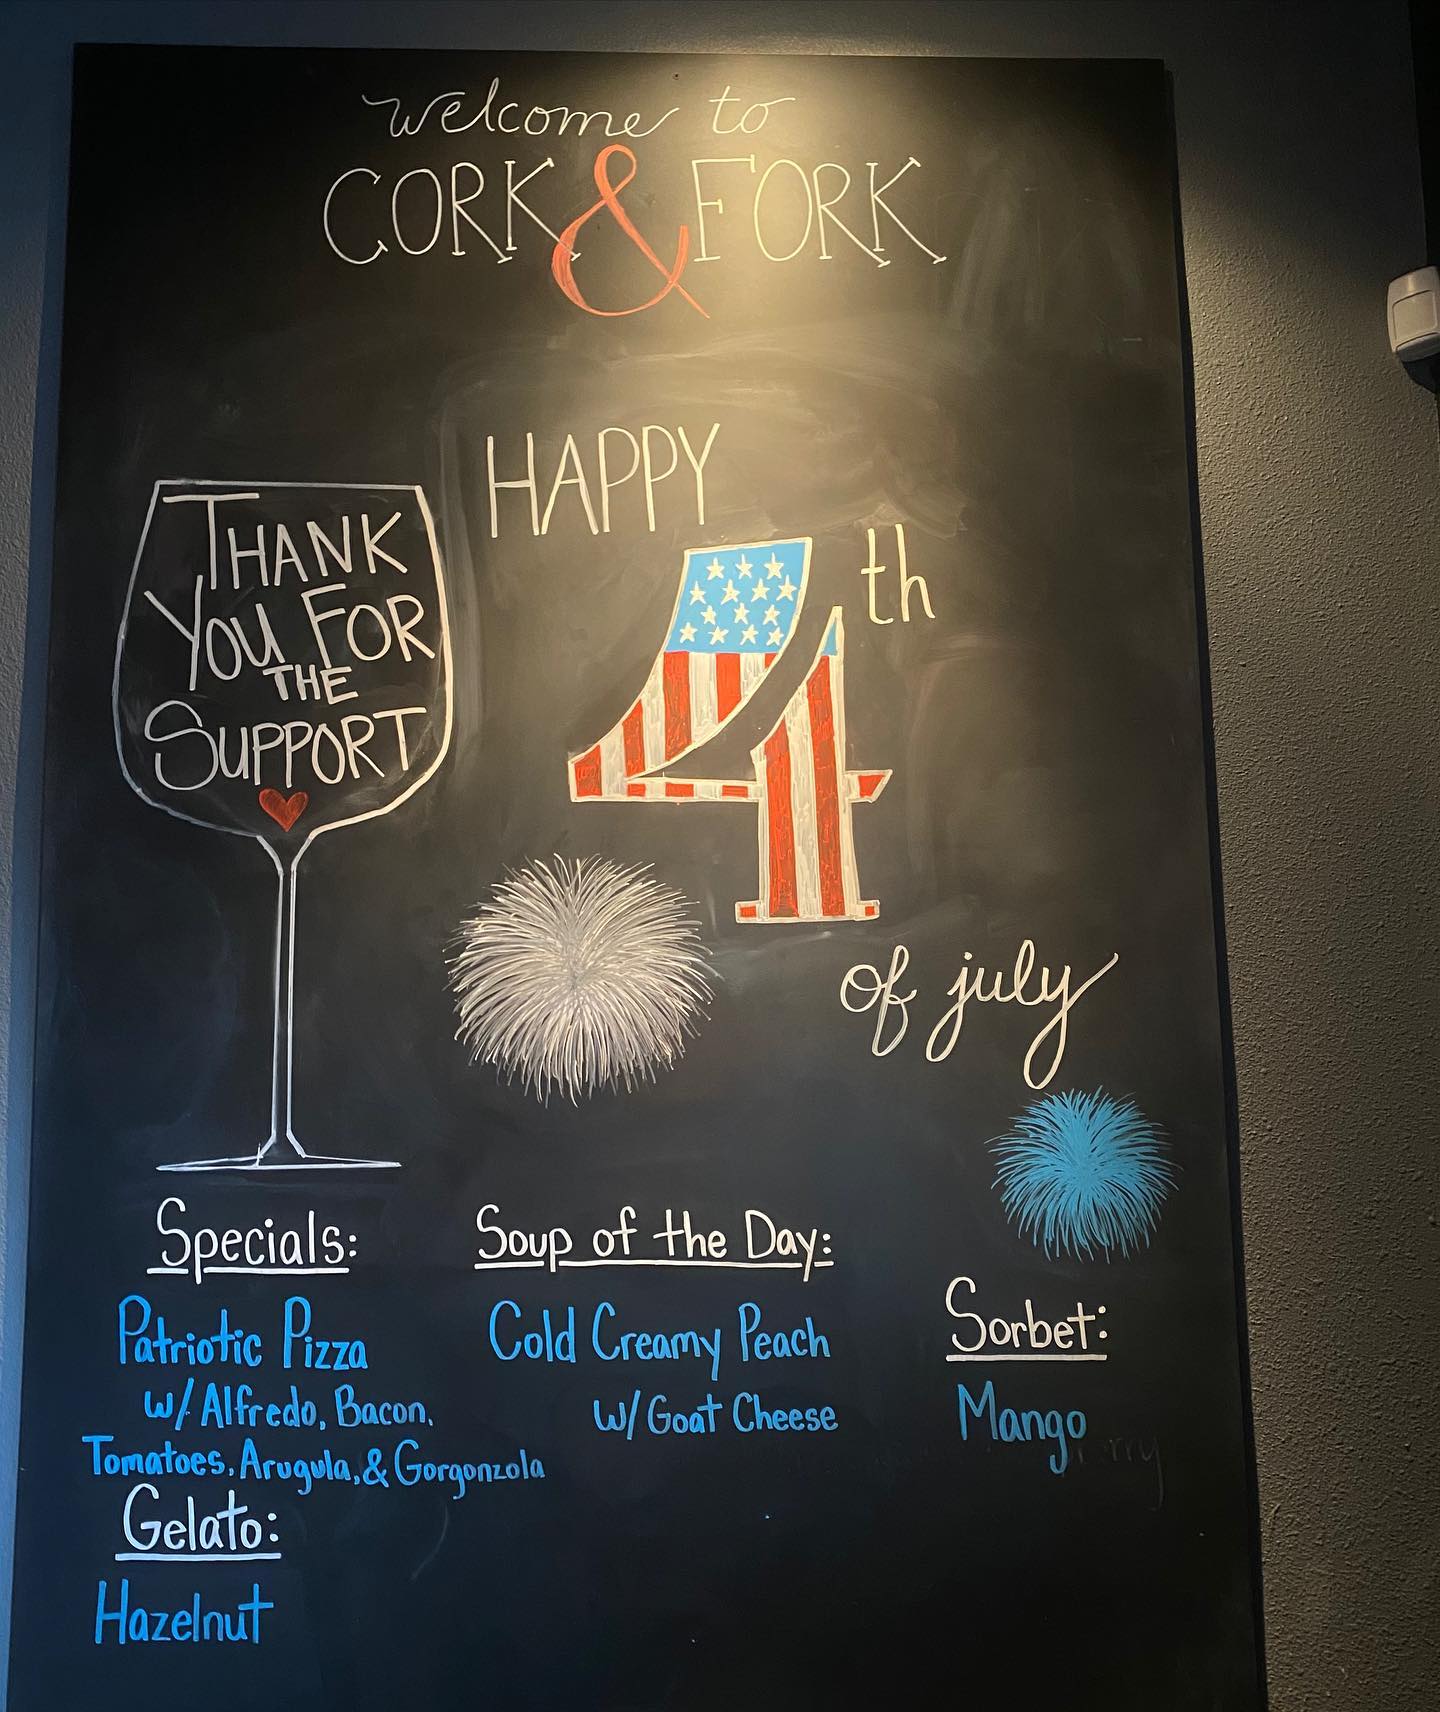 welcome to
CORK & FORK
HAPPY
4th
of july
THANK
YOU FOR
THE
SUPPORT
Specials:
Patriotic Pizza
w/ Alfredo, Bacon,
Tomatoes, Arugula, & Gorgonzola
Gelato:
Hazelnut
Soup of the Day:
Cold Creamy Peach
w/ Goat Cheese
Sorbet:
Mango